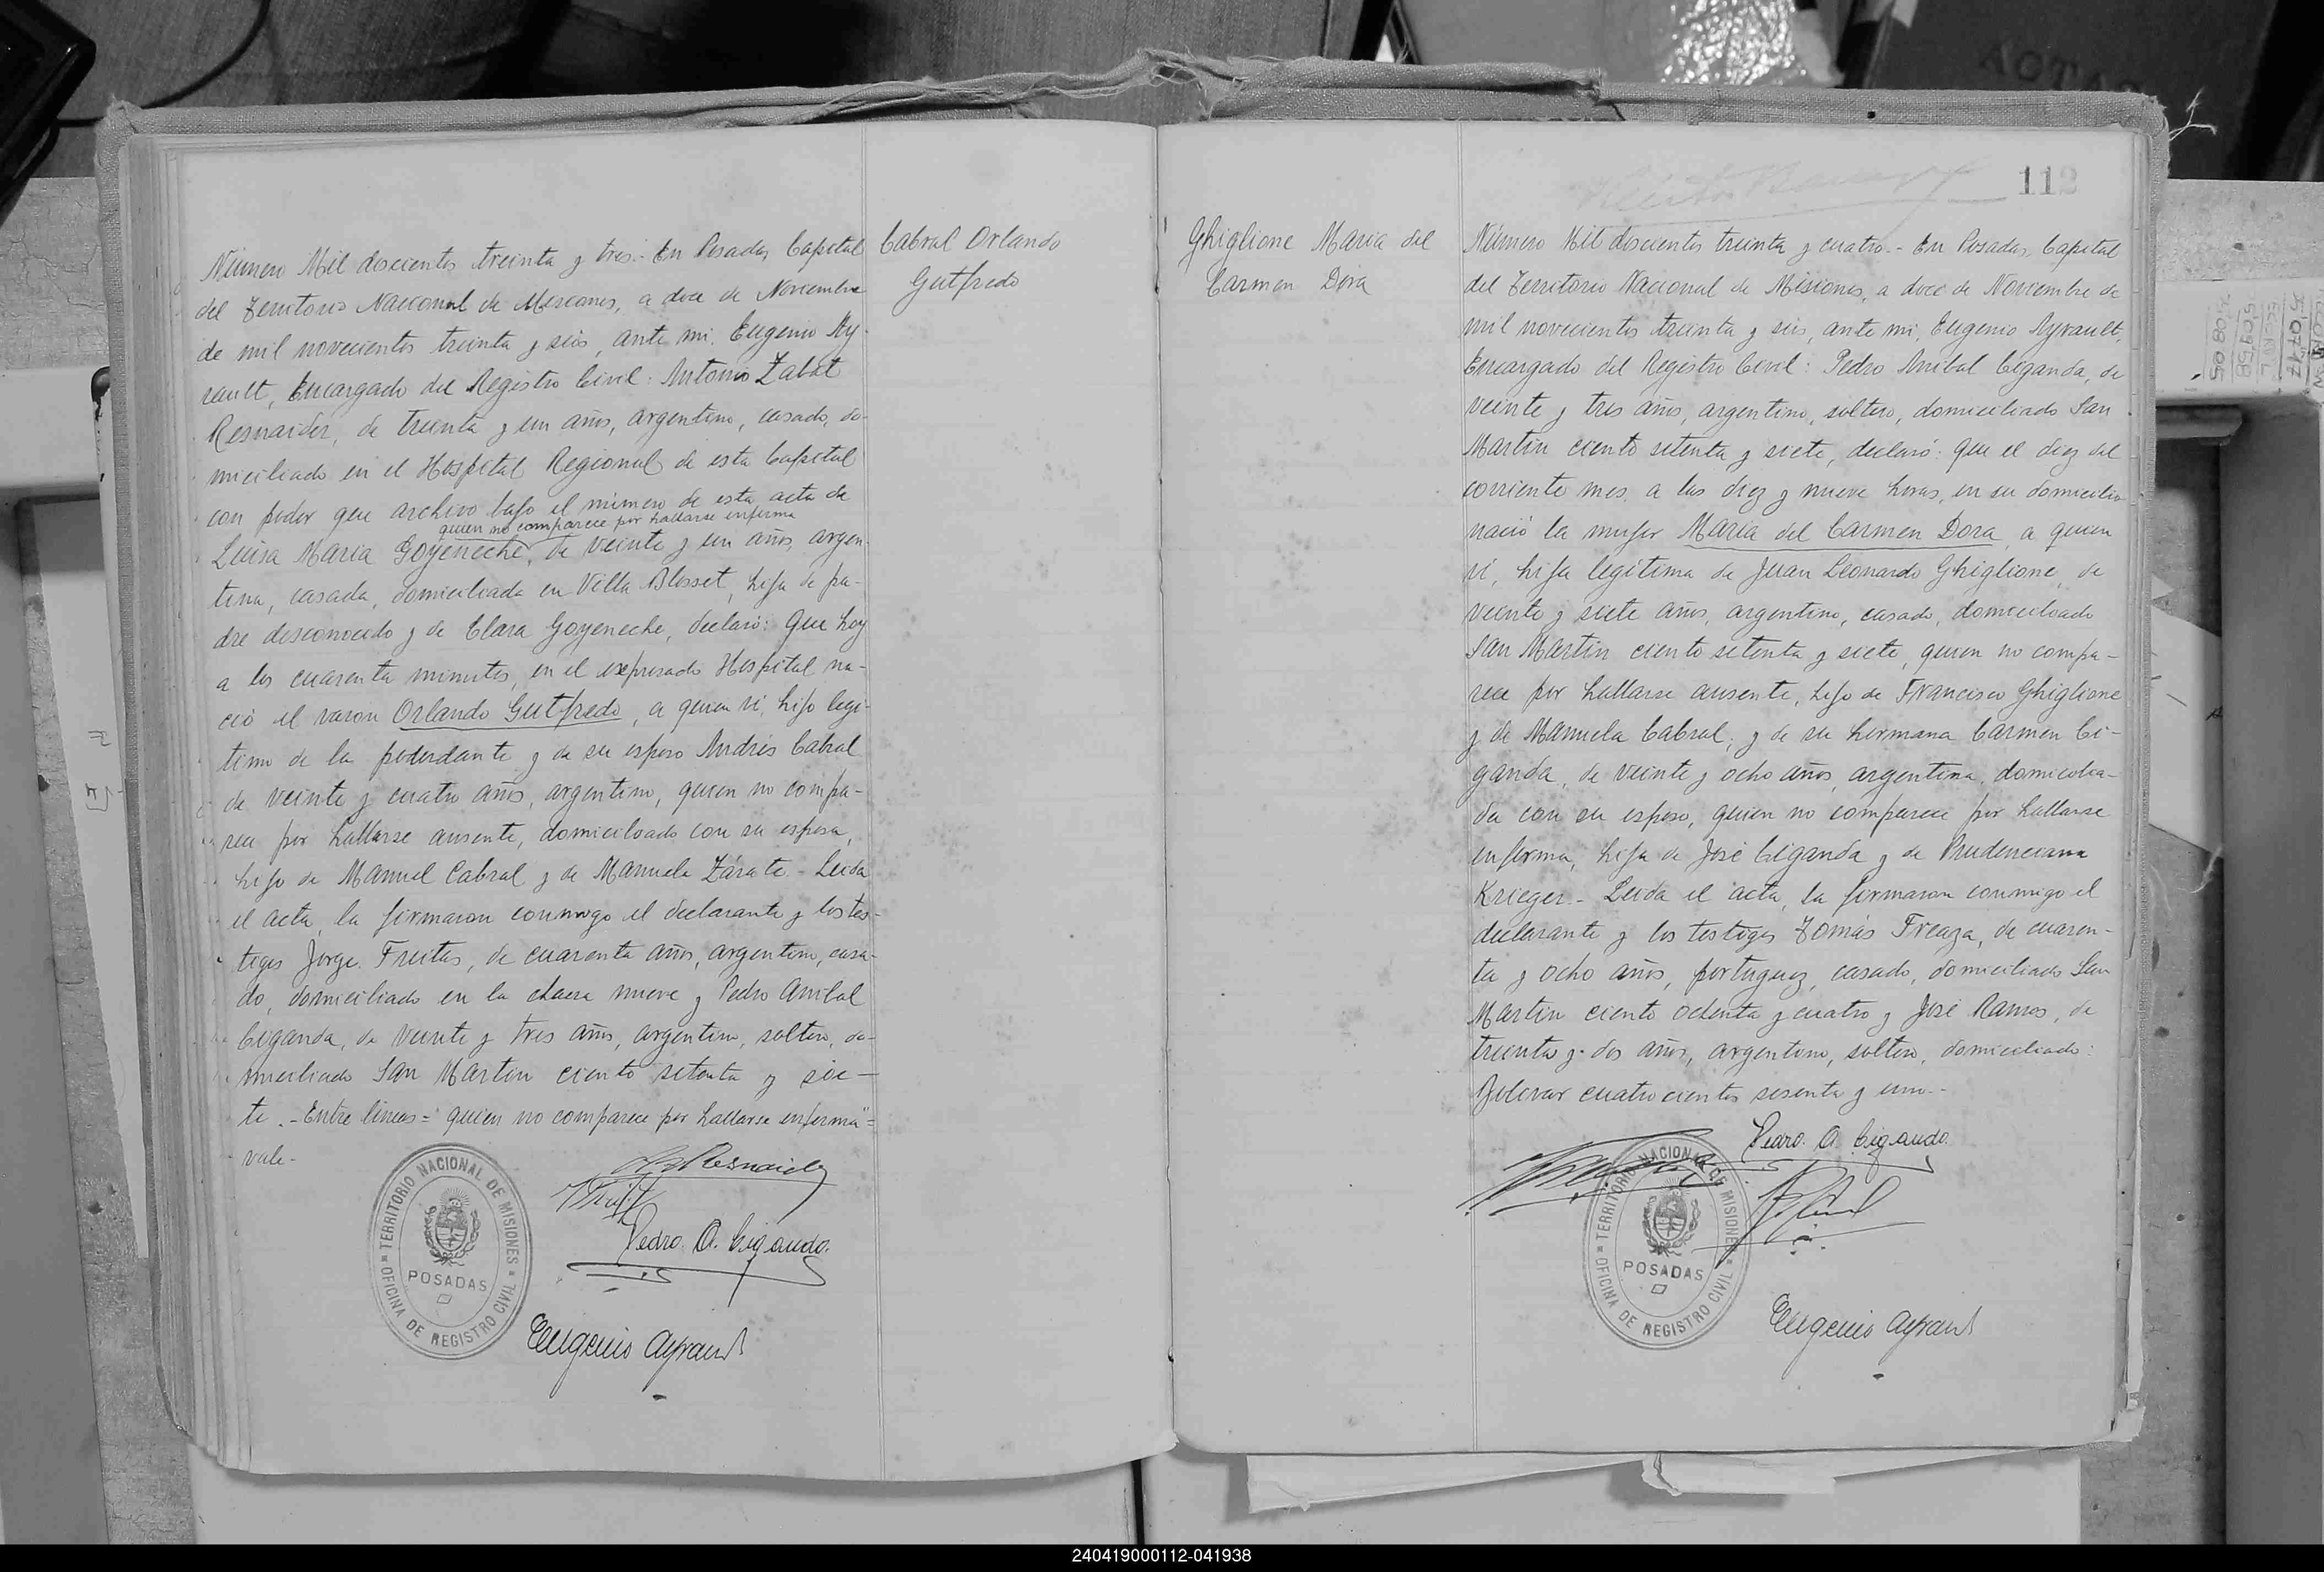 Número Mil doscientos treinta y tres.- En Posadas, Capital
del Territorio Nacional de Misiones, a doce de Noviembre
de mil novecientos treinta y seis, ante mi, Eugenio Ay-
rault, Encargado del Registro Civil: Antonio Zabat
Resnaider, de treinta y un años, argentino, casado, do-
miciliado en el Hospital Regional de esta Capital
con poder que archivo bajo el número de esta acta de
quien no comparece por hallarse enferma
Luisa Maria Goyeneche, de veinte y un años, argen-
tina, casada, domiciliada en Villa Blosset, hija de pa-
dre desconocido y de Clara Goyeneche, declaró: Que hoy
a los cuarenta minutos, en el expresado Hospital na-
ció el varon Orlando Gutfredo, a quien vi, hijo legi-
timo de la poderdante y de su esposo Andrés Cabral
de veinte y cuatro años, argentino, quien no compa-
rece por hallarse ausente, domiciliado con su esposa,
hijo de Manuel Cabral y de Manuela Zárate.- Leida
el acta, la firmaron conmigo el declarante y los tes-
tigos Jorge Freitas, de cuarenta años, argentino, casa-
do, domiciliado en la chacra nueve y Pedro Anibal
Ciganda, de veinte y tres años, argentino, soltero, do-
miciliado San Martin ciento setenta y sie-
te.- Entre lineas = quien no comparece por hallarse enferma =
vale-
Cabral Orlando
Gutfredo
Resnaider
Pedro A. Ciganda.
Eugenio Ayrault
TERRITORIO NACIONAL DE MISIONES
POSADAS
OFICINA DE REGISTRO CIVIL
112
Ghiglione Maria del
Carmen Dora
Número Mil doscientos treinta y cuatro.- En Posadas, Capital
del Territorio Nacional de Misiones, a doce de Noviembre de
mil novecientos treinta y seis, ante mi, Eugenio Ayrault,
Encargado del Registro Civil: Pedro Anibal Ciganda, de
veinte y tres años, argentino, soltero, domiciliado San
Martin ciento setenta y siete, declaró: que el diez del
corriente mes, a las diez y nueve horas, en su domicilio
nació la mujer Maria del Carmen Dora, a quien
vi, hija legitima de Juan Leonardo Ghiglione, de
veinte y siete años, argentino, casado, domiciliado
San Martin ciento setenta y siete, quien no compa-
rece por hallarse ausente, hijo de Francisco Ghiglione
y de Manuela Cabral; y de su hermana Carmen Ci-
ganda, de veinte y ocho años, argentina, domicilia-
da con su esposo, quien no comparece por hallarse
enferma, hija de José Ciganda y de Prudenciana
Krieger.- Leida el acta, la firmaron conmigo el
declarante y los testigos Tomás Freaza, de cuaren-
ta y ocho años, portuguez, casado, domiciliado San
Martin ciento ochenta y cuatro y José Ramos, de
treinta y dos años, argentino, soltero, domiciliado:
Bolivar cuatrocientos sesenta y uno.-
Pedro. A. Ciganda.
Eugenio Ayrault
TERRITORIO NACIONAL DE MISIONES
POSADAS
OFICINA DE REGISTRO CIVIL
240419000112-041938